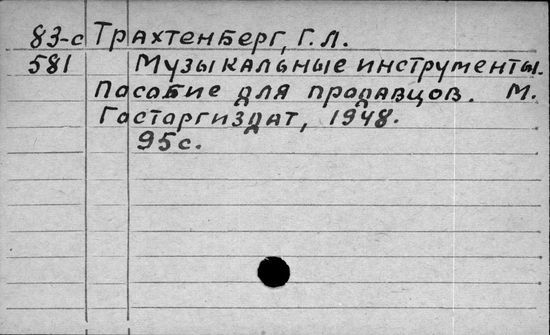 83-с Трахтенберг, Г.Л.
581 Музыкальные инструменты.
Пособие для продавцов. М.
Госторгиздат, 1948.
95с.